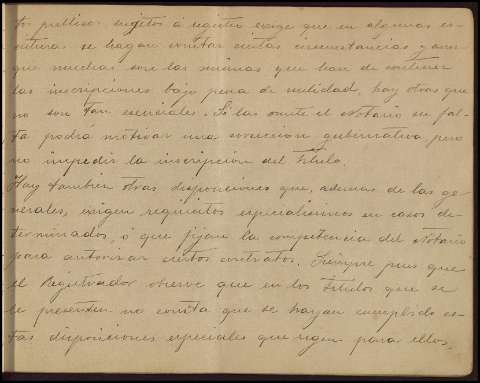 tos públicos sujetos á registro exige que en algunas es-
crituras se hagan constar ciertas circunstancias y aun-
que muchas son las mismas que han de contener
las inscripciones bajo pena de nulidad, hay otras que
no son tan esenciales. Si las omite el Notario su fal-
ta podra motivar una corrección gubernativa, pero
no impedir la inscripción del título.
Hay tambien otras disposiciones que, además de las ge-
nerales, exigen requisitos especialísimos en casos de-
terminados, ó que fijan la competencia del Notario
para autorizar ciertos contratos. Siempre pues que
el Registrador observe que en los títulos que se
le presenten no consta que se hayan cumplido es-
tas disposiciones especiales que rigen para ellos,